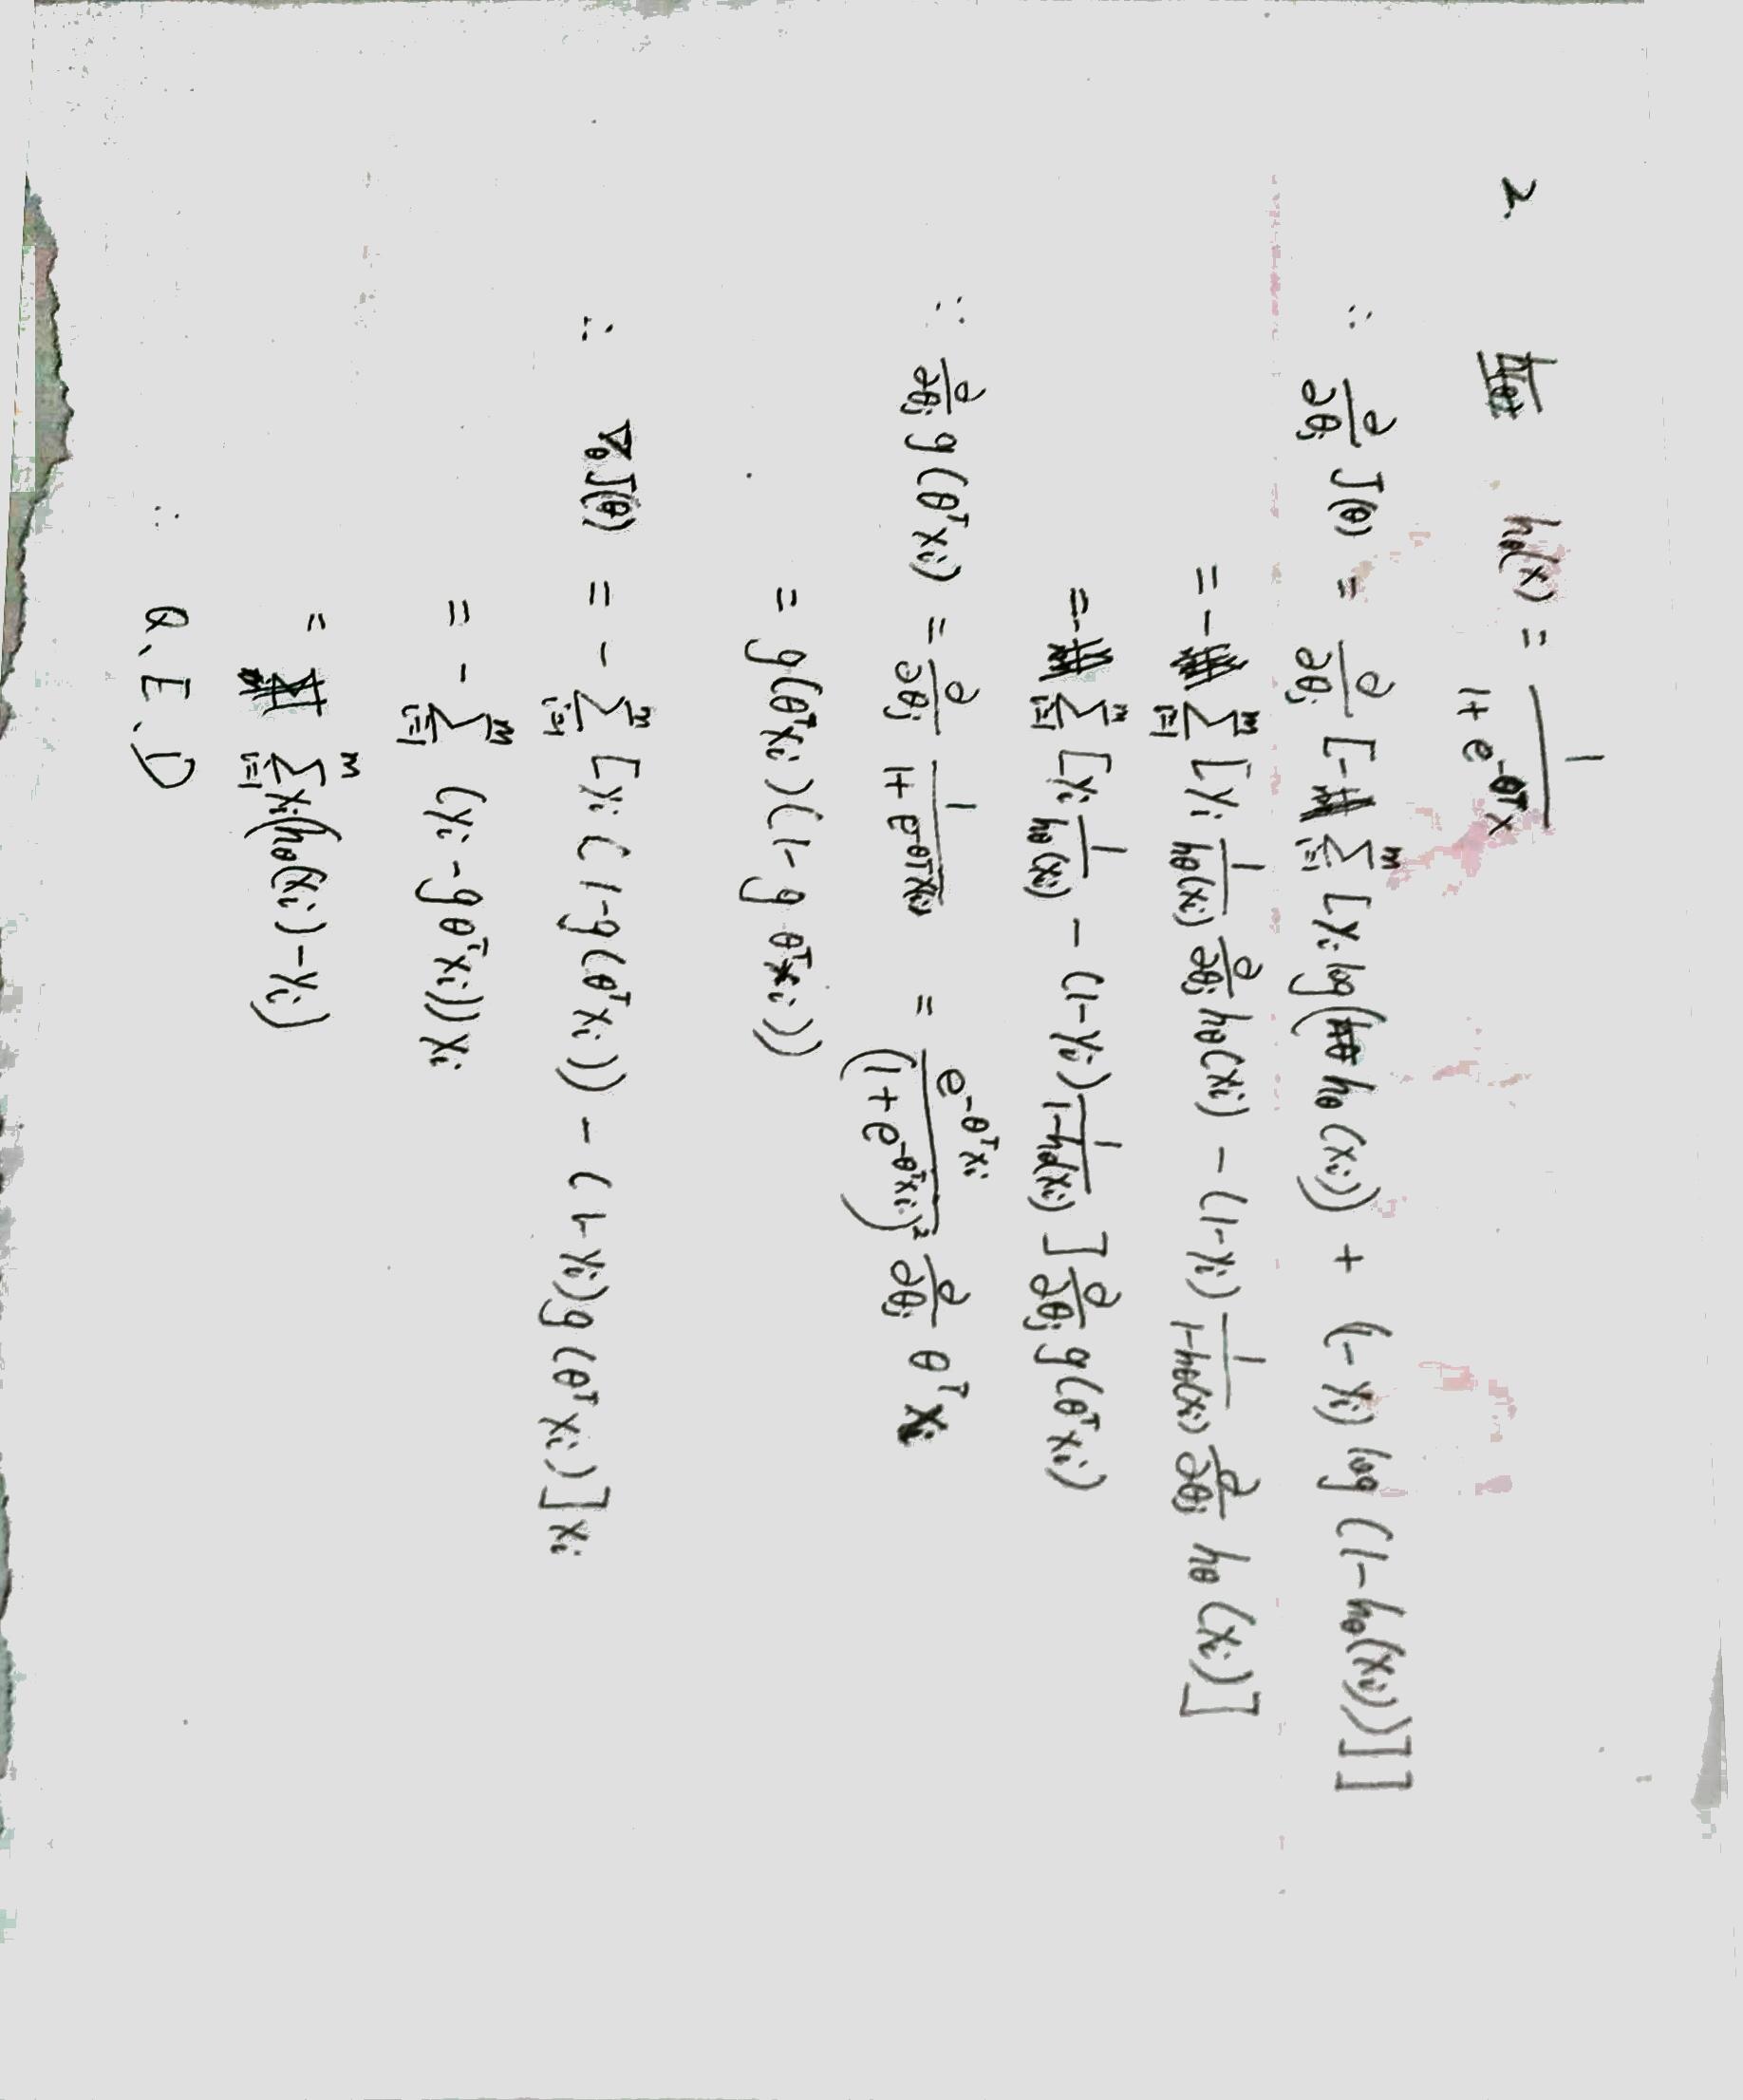 2. h_θ(x) = 1 / (1 + e^{-θ^T x})
∴ ∂/∂θ_j J(θ) = ∂/∂θ_j [ - Σ_{i=1}^{m} [ y_i log(h_θ(x_i)) + (1 - y_i) log(1 - h_θ(x_i)) ] ]
= - Σ_{i=1}^{m} [ y_i 1/h_θ(x_i) ∂/∂θ_j h_θ(x_i) - (1 - y_i) 1/(1 - h_θ(x_i)) ∂/∂θ_j h_θ(x_i) ]
= - Σ_{i=1}^{m} [ y_i 1/h_θ(x_i) - (1 - y_i) 1/(1 - h_θ(x_i)) ] ∂/∂θ_j g(θ^T x_i)
∵ ∂/∂θ_j g(θ^T x_i) = ∂/∂θ_j 1/(1 + e^{-θ^T x(i)}) = e^{-θ^T x_i} / (1 + e^{-θ^T x_i})^2 ∂/∂θ_j θ^T x_i
= g(θ^T x_i)(1 - g θ^T x_i))
∴ ∇_θ J(θ) = - Σ_{i=1}^{m} [ y_i (1 - g(θ^T x_i)) - (1 - y_i) g(θ^T x_i) ] x_i
= - Σ_{i=1}^{m} (y_i - g θ^T x_i)) x_i
= Σ_{i=1}^{m} x_i (h_θ(x_i) - y_i)
∴ Q、E、D